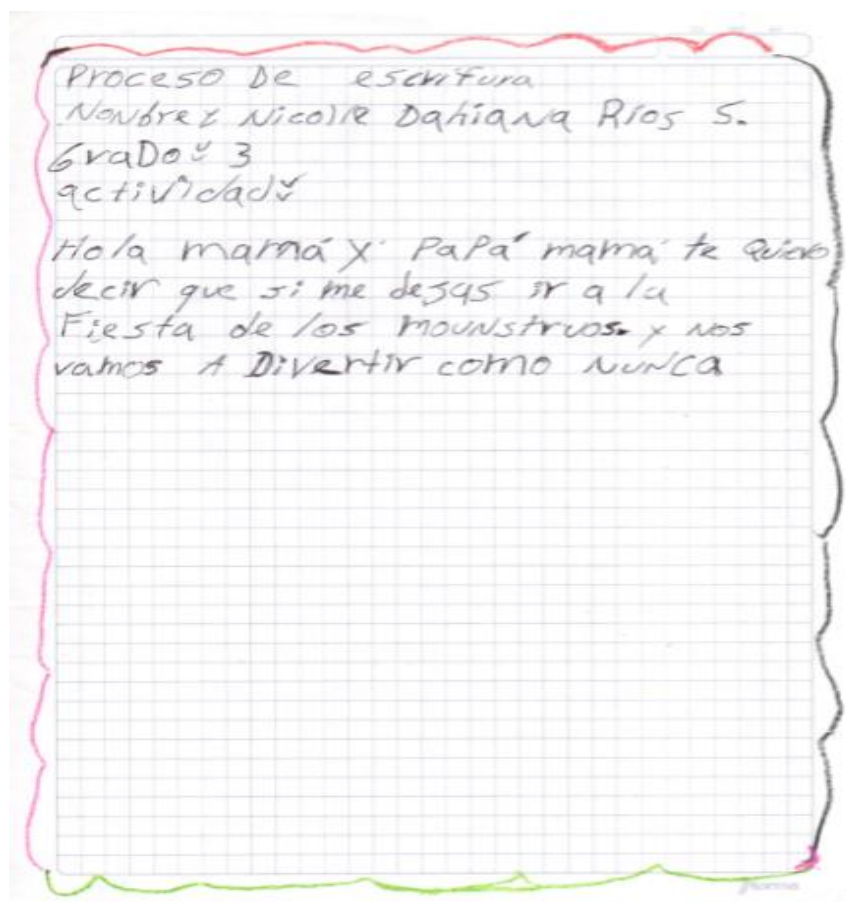 Proceso De escritura
Nonbre: Nicolle Dahiana Ríos S.
GraDo: 3
actividad:
Hola mamá y PaPá mamá te Quiero
decir que si me desas ir a la
Fiesta de los mounstruos. y nos
vamos A Divertir como NUNCa